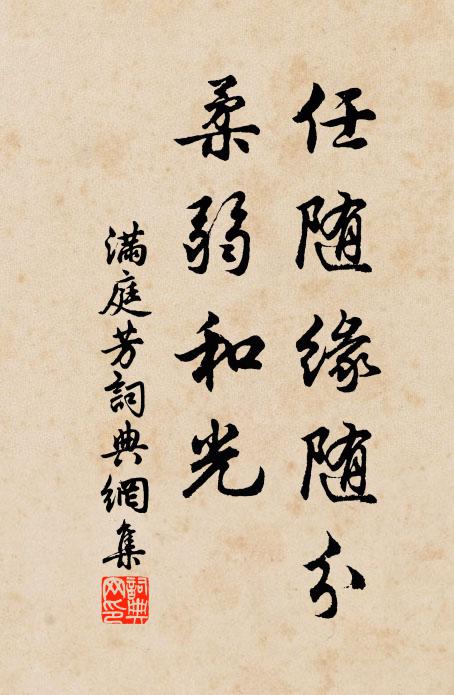 任随缘随分
柔弱和光
满庭芳詞典網集
詞典
网印